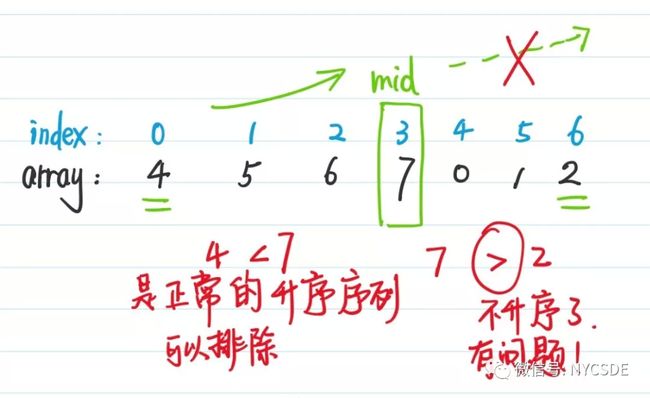 mid
index: 0 1 2 3 4 5 6
array: 4 5 6 7 0 1 2
4 < 7
7 > 2
是正常的升序序列
可以排除
不升序了.
有问题!
微信号: NYCSDE